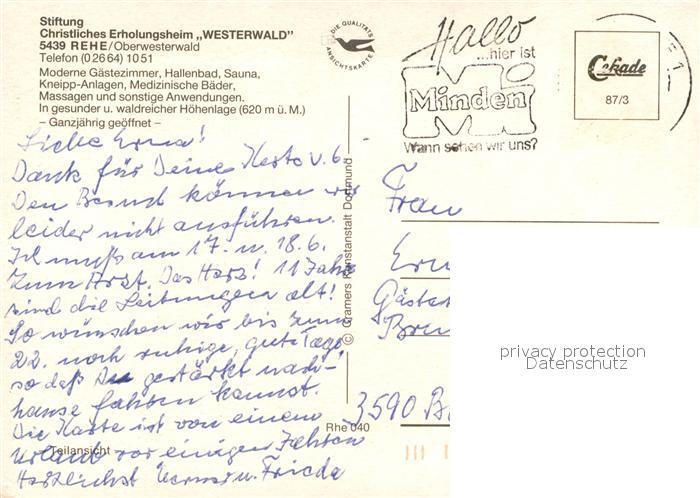 Stiftung
Christliches Erholungsheim „WESTERWALD"
5439 REHE/Oberwesterwald
Telefon (02664) 1051
Moderne Gästezimmer, Hallenbad, Sauna,
Kneipp-Anlagen, Medizinische Bäder,
Massagen und sonstige Anwendungen.
In gesunder u. waldreicher Höhenlage (620 m ü. M.)
– Ganzjährig geöffnet –
Liebe Erna!
Dank für Deine Karte v. 6.
Den Besuch können wir
leider nicht ausführen.
Ich muß am 17. u. 18.6.
zum Arzt. Das Herz! 11 Jahre
sind die Leitungen alt!
So wünschen wir bis zum
22. noch ruhige, gute Tage,
so daß Du gestärkt nach-
hause fahren kannst.
Die Karte ist von einem
Urlaub vor einigen Jahren
– Teilansicht –
Herzlichst Herm. u. Frieda
DIE QUALITÄTS
ANSICHTSKARTE
© Cramers Kunstanstalt Dortmund
Rhe 040
Hallo
...hier ist
Minden
Wann sehen wir uns?
Cekade
87/3
Frau
Ern
Gäste
3590 B
privacy protection
Datenschutz